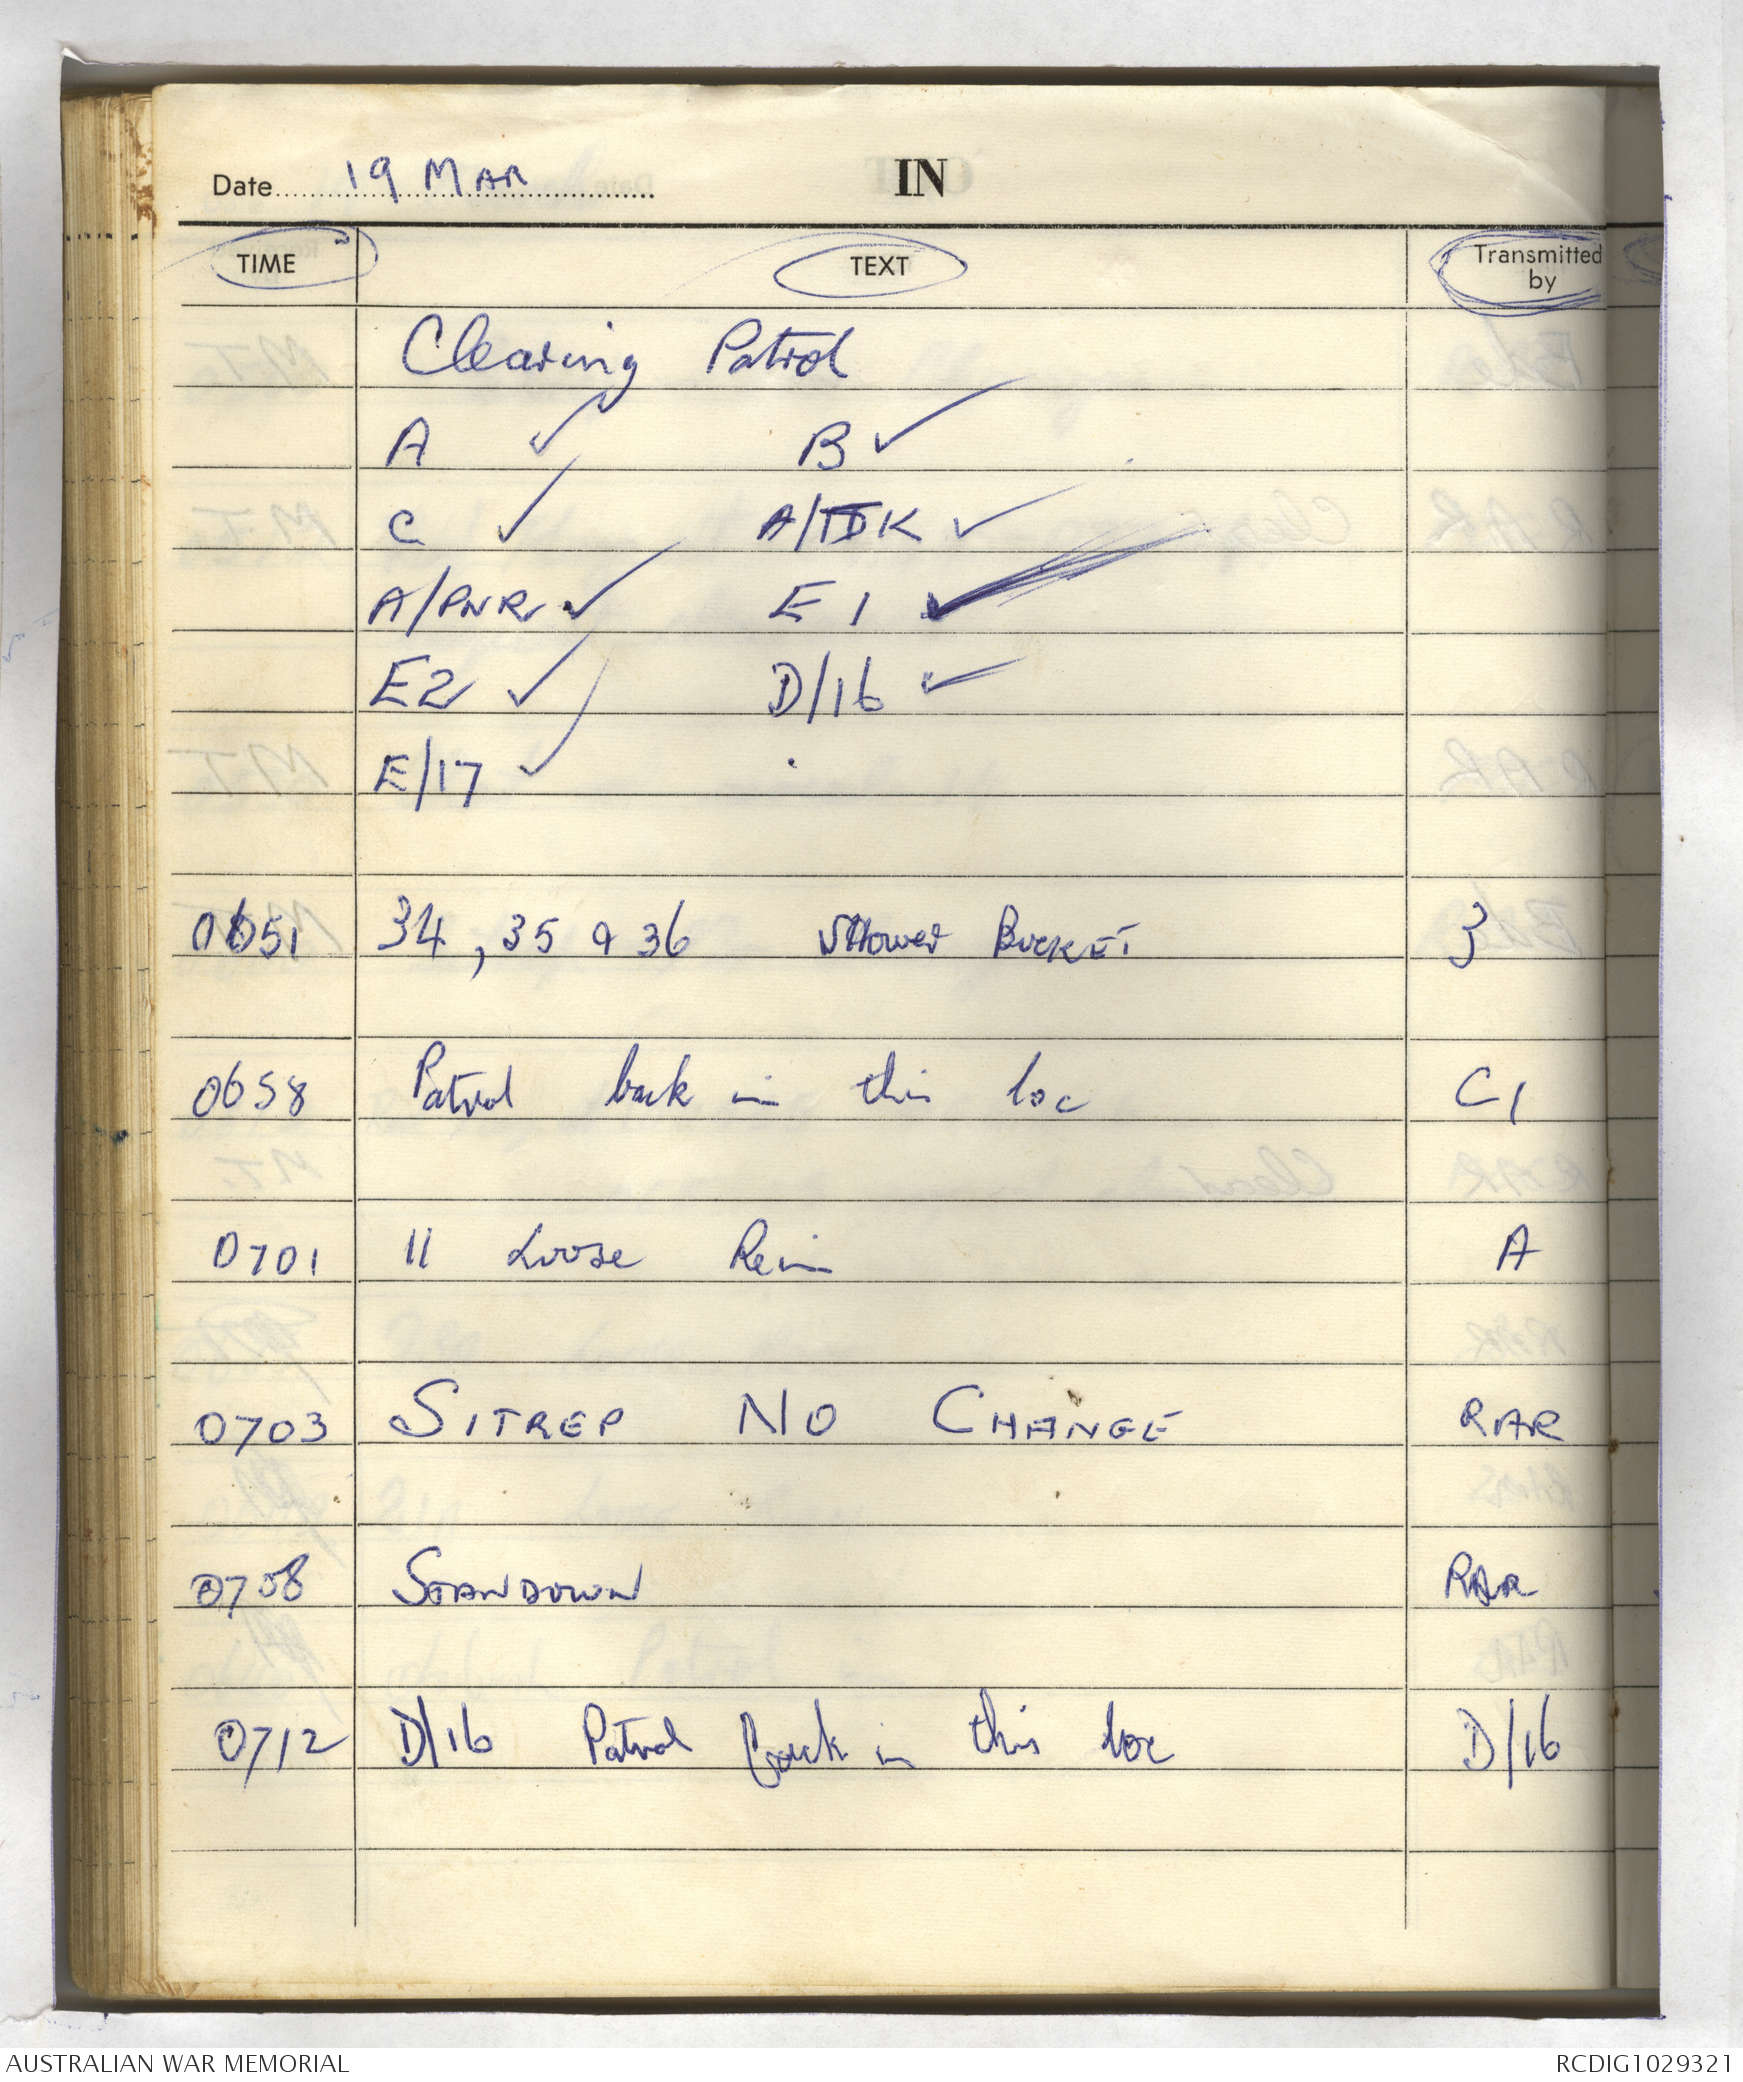 Date 19 MAR IN
TIME TEXT Transmitted by
Clearing Patrol
A ✓ B ✓
C ✓ A/TDK ✓
A/PNR ✓ E1 ✓
E2 ✓ D/16 ✓
E/17 ✓
0651 34, 35 & 36 Shower Bucket 3
0658 Patrol back in this loc C1
0701 11 Loose Rein A
0703 SITREP NO CHANGE RAR
0708 STANDOWN RAR
0712 D/16 Patrol back in this loc D/16
AUSTRALIAN WAR MEMORIAL RCDIG1029321